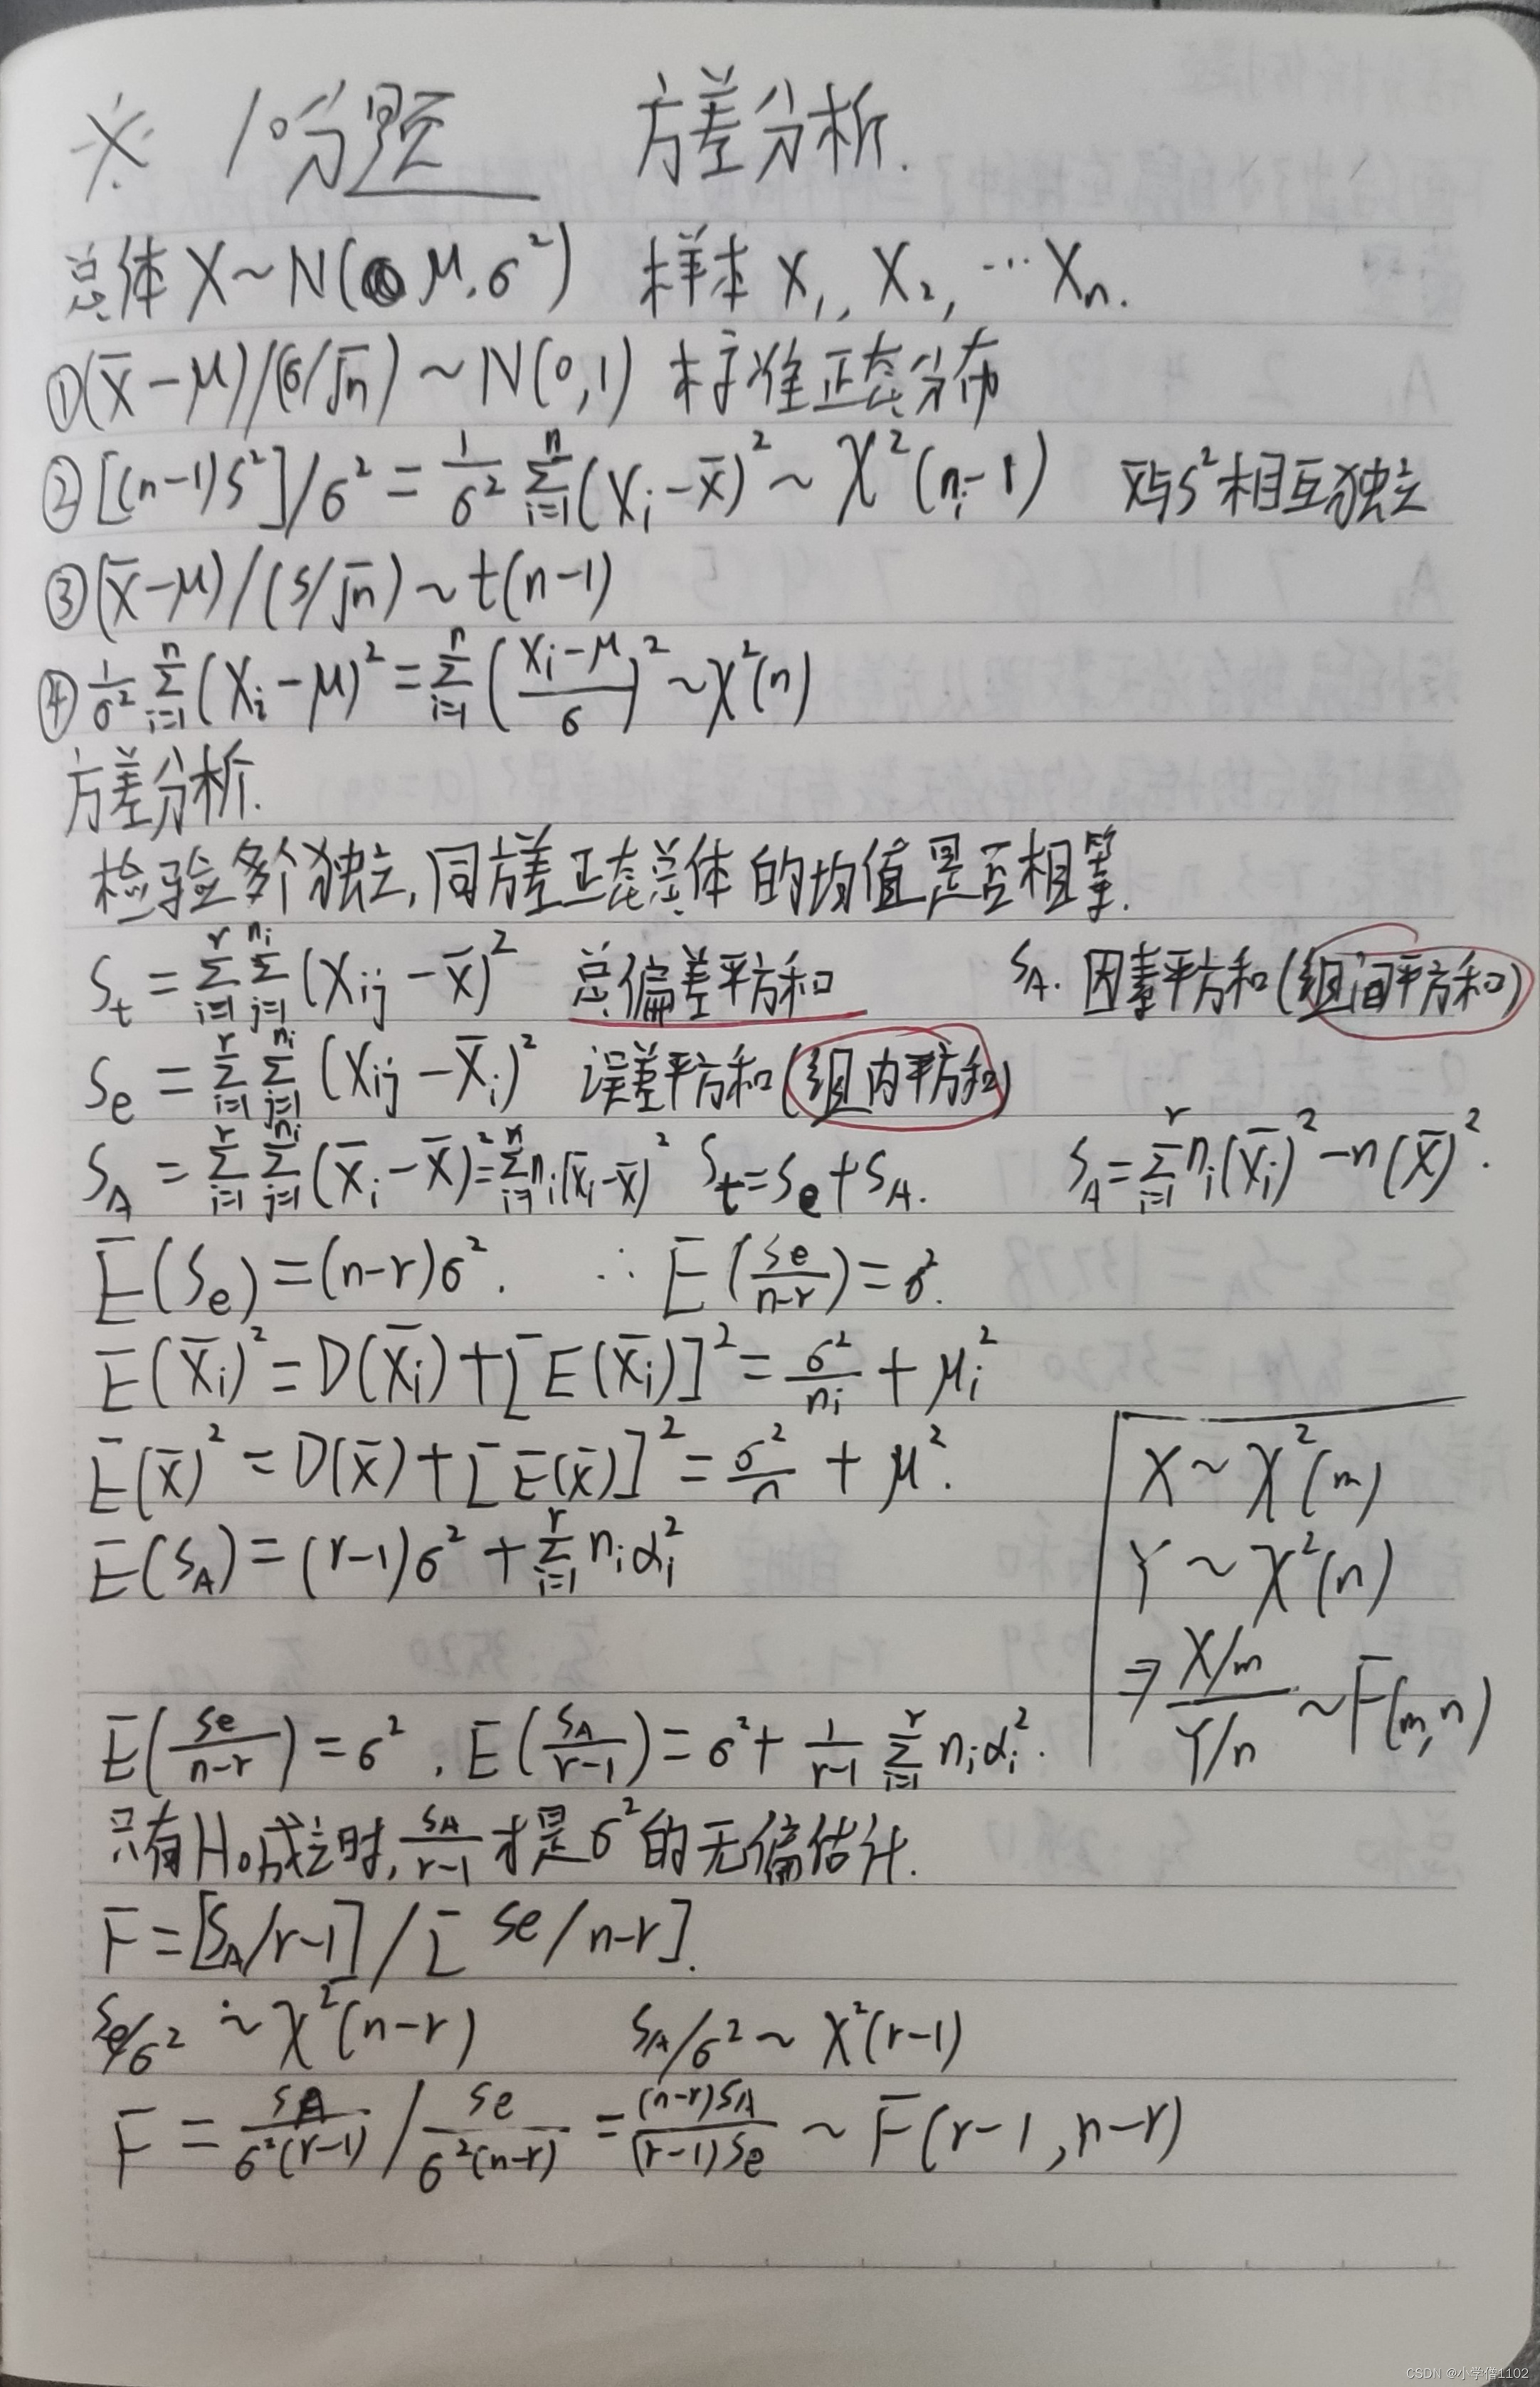 ※ 10分题 方差分析.
总体 X~N(μ,σ²) 样本 X₁, X₂, …Xₙ.
①(x̄-μ)/(σ/√n) ~ N(0,1) 标准正态分布
②[(n-1)S²]/σ² = 1/σ² Σⁿᵢ₌₁(Xᵢ-x̄)² ~ χ²(nᵢ-1) x̄与S²相互独立
③(x̄-μ)/(S/√n) ~ t(n-1)
④1/σ² Σⁿᵢ₌₁(Xᵢ-μ)² = Σⁿᵢ₌₁((Xᵢ-μ)/σ)² ~ χ²(n)
方差分析.
检验多个独立,同方差正态总体的均值是否相等.
S_t = Σʳᵢ₌₁ Σ^{nᵢ}ⱼ₌₁ (Xᵢⱼ-x̄)² 总偏差平方和 S_A. 因素平方和(组间平方和)
S_e = Σʳᵢ₌₁ Σ^{nᵢ}ⱼ₌₁ (Xᵢⱼ-X̄ᵢ)² 误差平方和(组内平方和)
S_A = Σʳᵢ₌₁ Σ^{nᵢ}ⱼ₌₁ (X̄ᵢ-X̄)² = Σʳᵢ₌₁ nᵢ(X̄ᵢ-X̄)² S_t=S_e+S_A. S_A=Σʳᵢ₌₁ nᵢ(X̄ᵢ)²-n(X̄)².
E(S_e)=(n-r)σ². ∴ E(S_e/(n-r))=σ².
E(X̄ᵢ)²=D(X̄ᵢ)+[E(X̄ᵢ)]²=σ²/nᵢ+μᵢ²
E(x̄)²=D(x̄)+[E(x̄)]²=σ²/n+μ².
E(S_A)=(r-1)σ²+Σʳᵢ₌₁ nᵢαᵢ²
X~χ²(m)
Y~χ²(n)
⇒ (X/m)/(Y/n) ~F(m,n)
E(S_e/(n-r))=σ², E(S_A/(r-1))=σ²+1/(r-1) Σʳᵢ₌₁ nᵢαᵢ².
只有H₀成立时, S_A/(r-1) 才是σ²的无偏估计.
F=[S_A/r-1]/[S_e/n-r].
S_e/σ² ~ χ²(n-r) S_A/σ² ~ χ²(r-1)
F = S_A/(σ²(r-1)) / S_e/(σ²(n-r)) = (n-r)S_A/((r-1)S_e) ~ F(r-1,n-r)
CSDN @小学偕1102